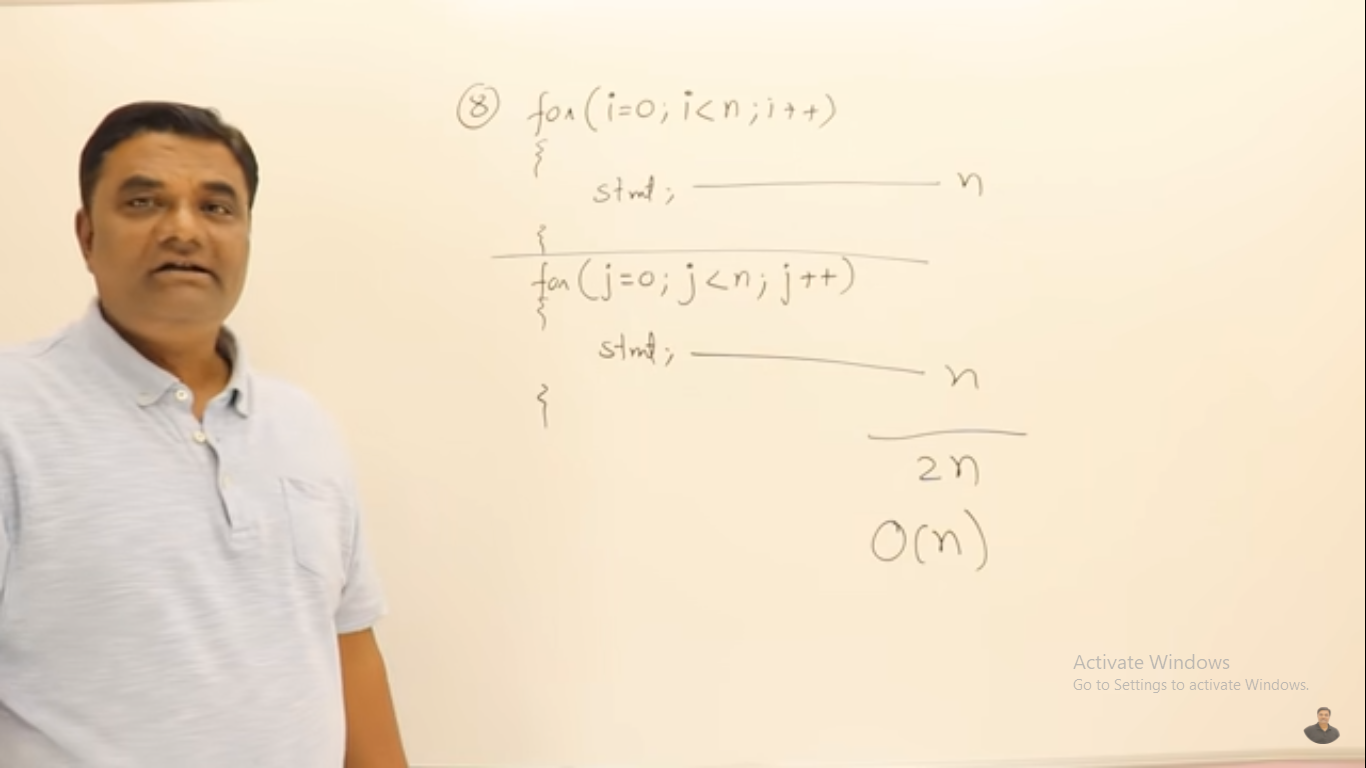 ⑧ for(i=0; i<n; i++)
{
stmt; n
}
for(j=0; j<n; j++)
{
stmt; n
}
2n
O(n)
Activate Windows
Go to Settings to activate Windows.